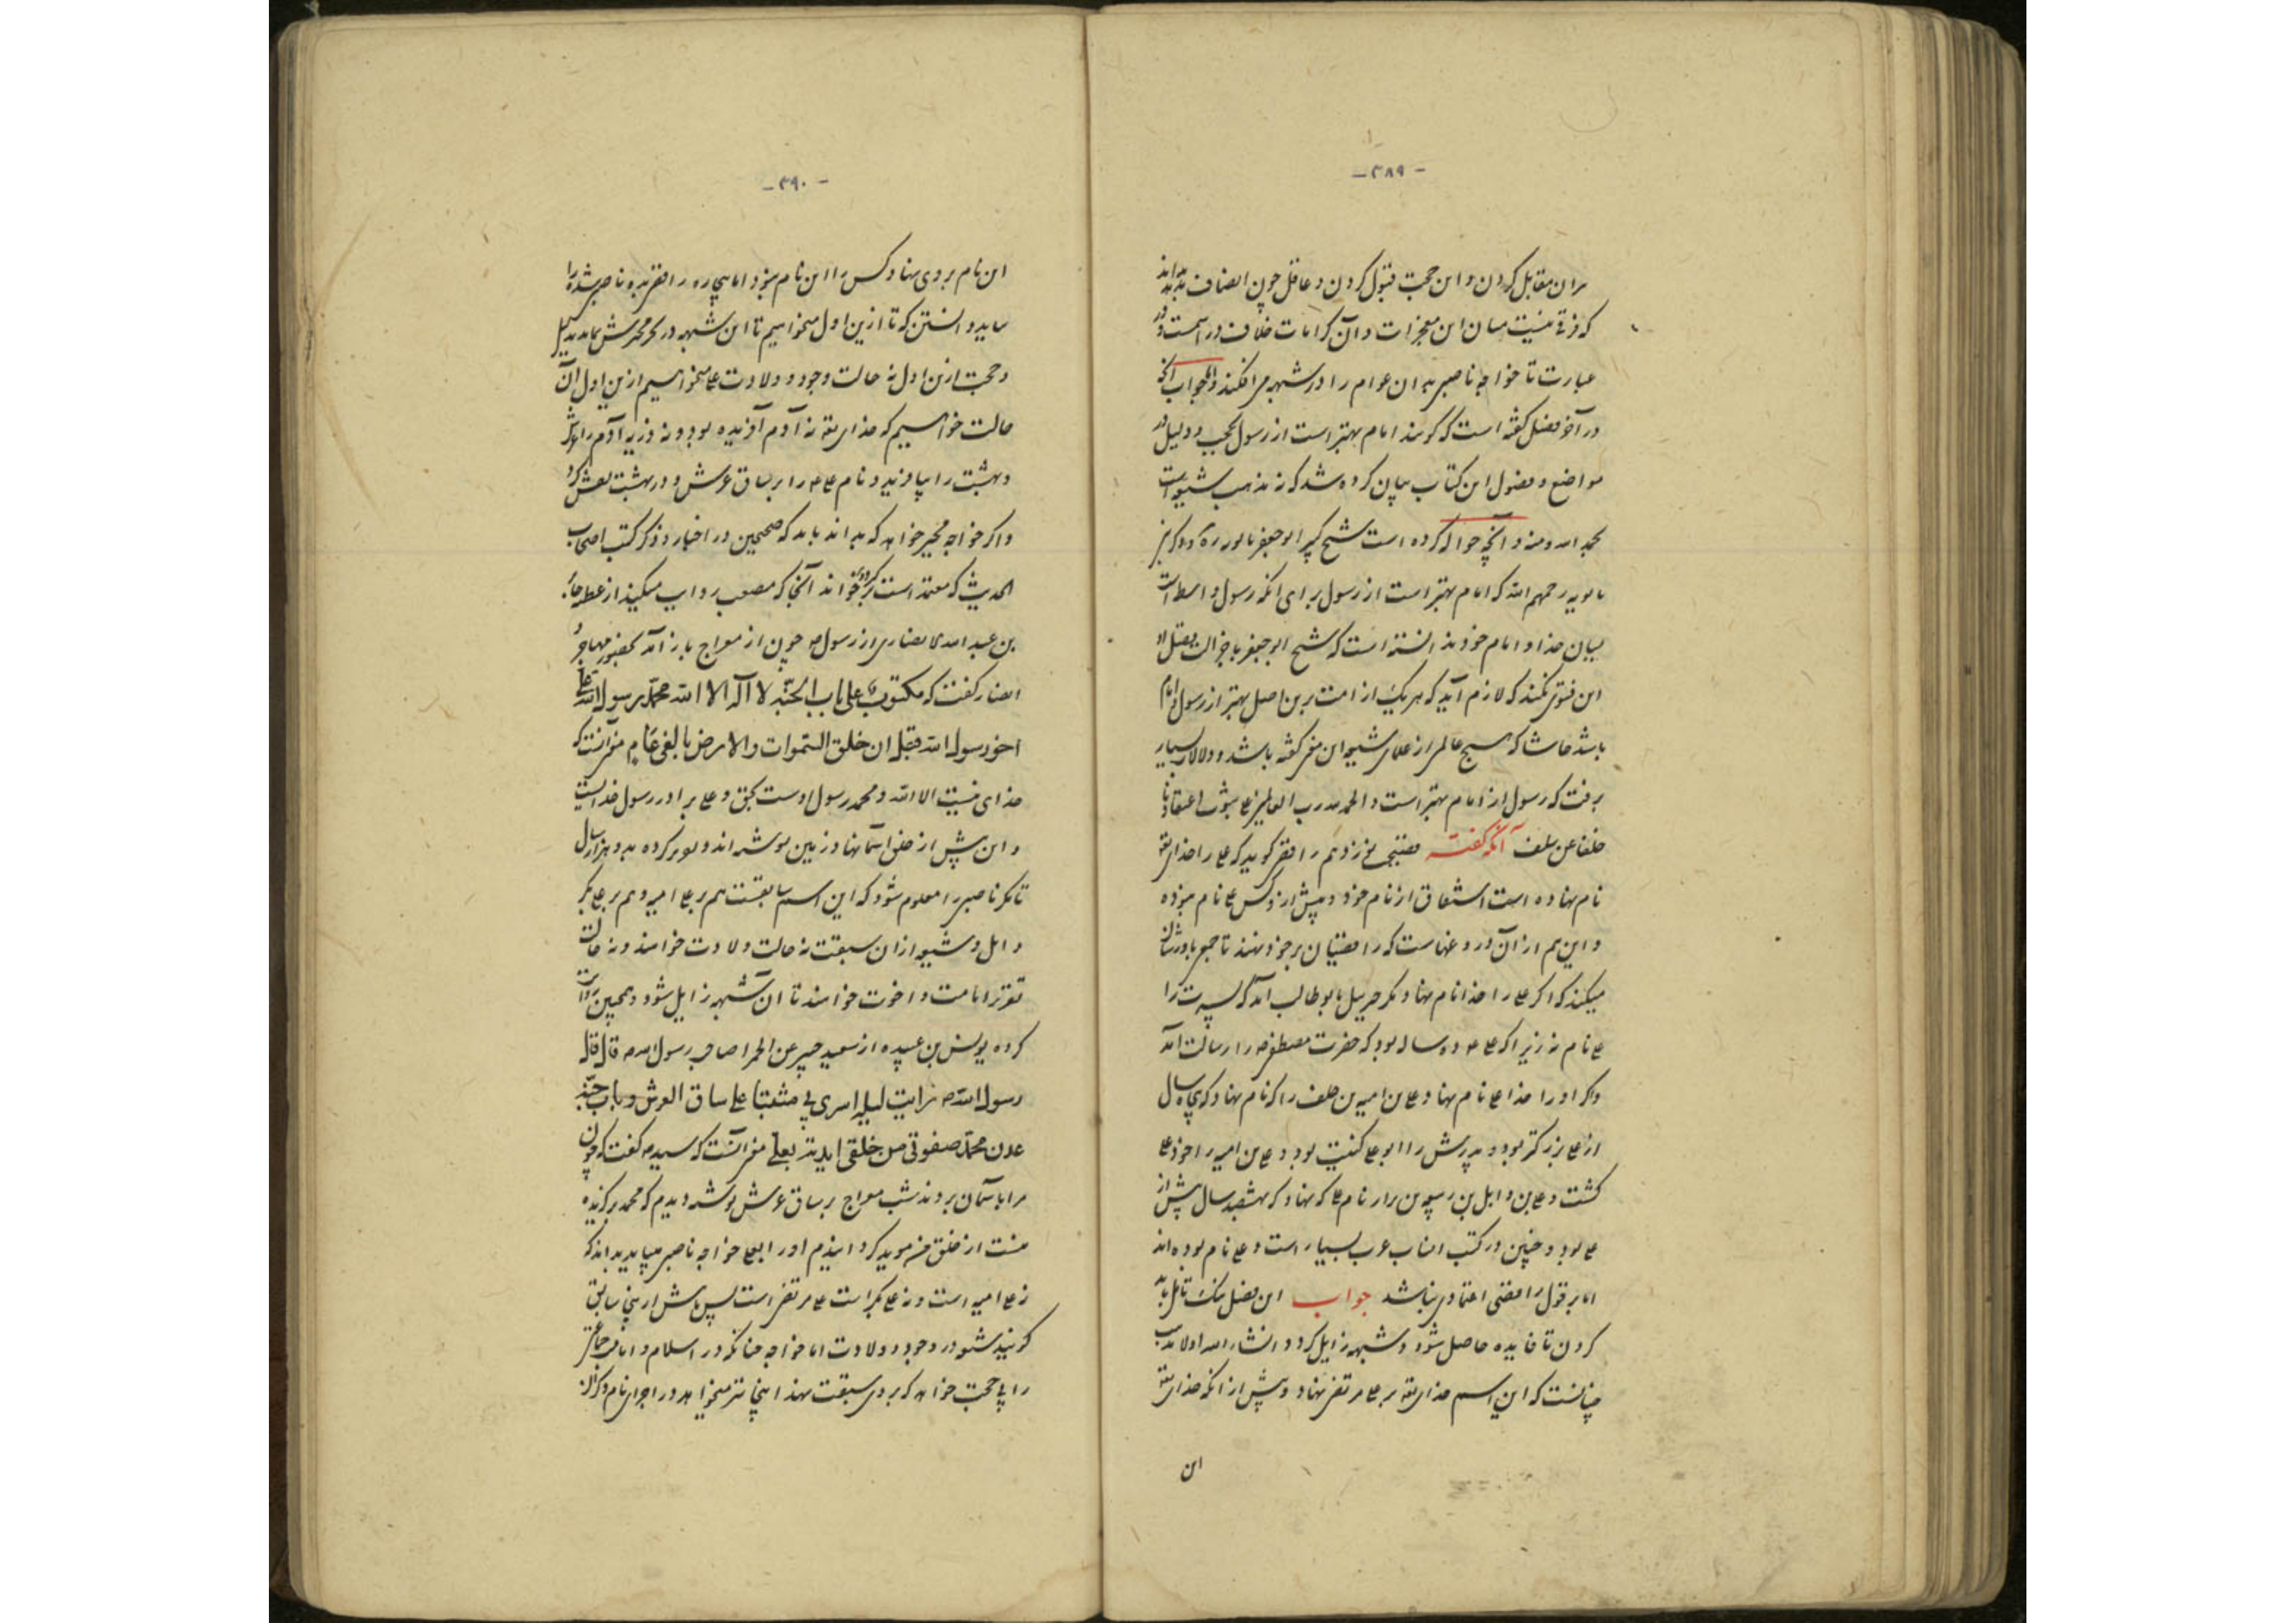 - ۳۸۹ -
بران مقابل کردن و این حجت قبول کردن و عاقل چون انصاف بدهد بداند
که فرقی نیست میان این معجزات و آن کرامات خلاف در اسمست و در
عبارت تا خواجه ناصبی بدان عوام را در شبهه می افکند و الجواب آنچه
در آخر فصل گفته است که گویند امام بهتر است از رسول بحجت و دلیل در
مواضع و فصول این کتاب بیان کرده شد که نه مذهب شیعه است
بحمد الله و منه و آنچه حواله کرده است بشیخ کبیر ابو جعفر بابویه ره
بابویه رحمهم الله که امام بهتر است از رسول برای آنکه رسول واسطه است
بمیان خدا و امام خود ندانسته است که شیخ ابو جعفر با جزالت فضل او
این فتوی نکند که لازم آید که هر یک از امت برین اصل بهتر از رسول و امام
باشد حاشا که هیچ عالمی از علمای شیعه این معنی گفته باشد و دلالات بسیار
برفت که رسول از امام بهتر است و الحمد لله رب العالمین علی ثبوت اعتقادنا
خلفا عن سلف آنکه گفته فضیحت نوزدهم رافضی گوید که علی را خدای تعالی
نام نهاده است اشتقاق از نام خود و پیش از او کس علی نام نبوده
و این هم از آن دروغهاست که رافضیان بر خود نهند تا جمع باورشان
میکنند که اگر علی را خدا نام نهاد مگر جبریل بابو طالب آمد که پسرت را
علی نام نه زیرا که علی ع ده ساله بود که حضرت مصطفی ص را رسالت آمد
و اگر او را خدا علی نام نهاد علی بن امیه بن خلف را که نام نهاد که پنجاه سال
از علی بزرگتر بود و پدرش را ابو علی کنیت بود و علی بن امیه را خود علی
کشت و علی بن وابل بن ربیعه بن برار نام علی که نهاد که بهشتصد سال پیش از
علی بود و چنین در کتب انساب عرب بسیار است و علی نام بوده اند
اما بر قول رافضی اعتمادی نباشد جواب این فصل نیک تامل باید
کردن تا فایده حاصل شود و شبهه زایل گردد انشاء الله اولا مذهب
چنانست که این اسم خدای تعالی بر علی مرتضی نهاد و پیش از آنکه خدای تعالی
این
- ۳۹۰ -
این نام بروی نهاد کس را این نام نبود اما بیچاره رافضی نه ناصبی شده را
بباید دانستن که تا ازین اول چه میخواهیم تا این شبهه در بحر محیرش نماند بدلیل
و حجت ازین اول نه حالت وجود و ولادت علی میخواهیم ازین اول آن
حالت خواهیم که خدای تعالی نه آدم آفریده بود و نه ذریه آدم را عرش
و بهشت را بیافرید و نام علی ع را بر ساق عرش و در بهشت نقش کرد
و اگر خواجه مجبر خواهد که بداند باید که صحیحین در اخبار و ذکر کتب اصحاب
الحدیث که معتمد است برخواند آنجا که مصعب روایت میکند از عطیه جابر
بن عبد الله انصاری از رسول ص چون از معراج باز آمد بحضور مهاجر و
انصار گفت که مکتوب علی باب الجنة لا اله الا الله محمد رسول الله علی
اخو رسول الله قبل ان خلق السموات والارض بالفی عام معنی آنست که
خدای نیست الا الله و محمد رسول اوست بحق و علی برادر رسول خداست
و این پیش از خلق آسمانها و زمین نوشته اند و تصویر کرده بدو هزار سال
تا مگر ناصبی را معلوم شود که این اسم سابقست هم بر علی امیه و هم بر علی بکر
و ایل و شیعه از آن سبقت نه حالت ولادت خواهند و نه حالت
تقریر امامت و اخوت خواهند تا آن شبهه زایل شود و همچنین روایت
کرده یونس بن عبیده از سعید جبیر عن الحمرا صاحب رسول الله ص قال قال
رسول الله ص رایت لیلة اسری بی مثبتا علی ساق العرش و باب جنة
عدن محمد صفوتی من خلقی ایدته بعلی معنی آنست که سید ص گفت که چون
مرا بآسمان بردند شب معراج بر ساق عرش نوشته دیدم که محمد برگزیده
منست از خلق من موید گردانیدم او را بعلی خواجه ناصبی میباید بداند که
نه علی امیه است و نه علی بکر است علی مرتضی است پس پیش از پنجا سابق
گویند نشنود در وجود و ولادت اما خواجه چنانکه در اسلام و امامت جماعتی
را بی حجت خواهد که بر وی سبقت نهد اینجا نیز میخواهد در اجرای نام و کذلک